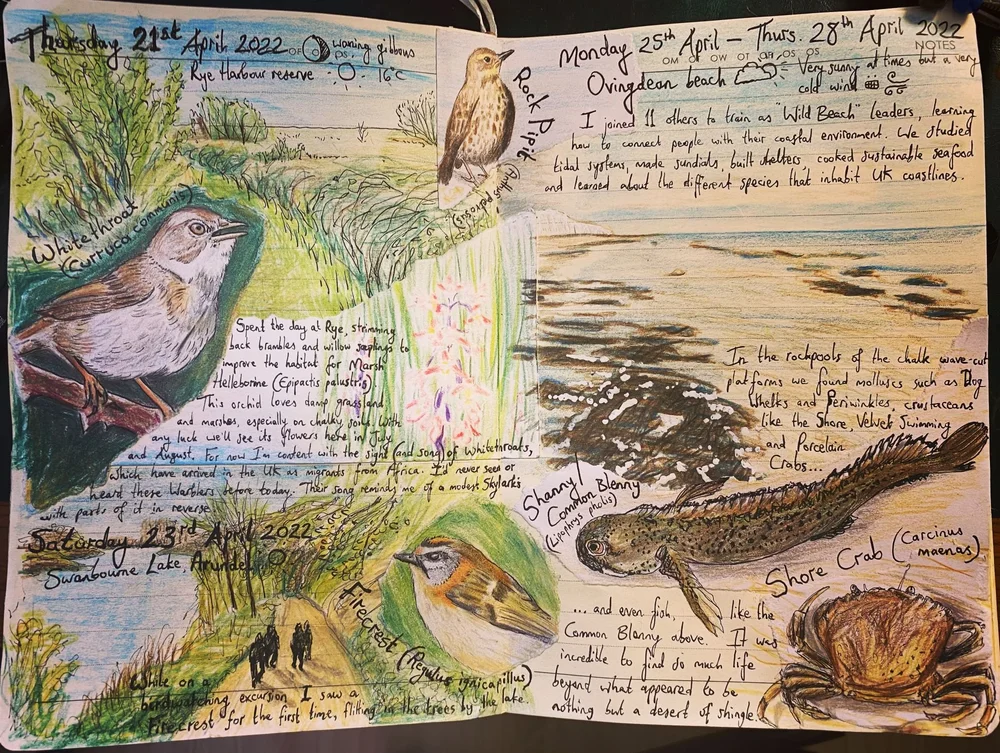 Thursday 21st April 2022
waning gibbous
Rye Harbour reserve 16°C
Rock Pipit
(Anthus petrosus)
Whitethroat
(Curruca communis)
Spent the day at Rye, strimming
back brambles and willow saplings to
improve the habitat for Marsh
Helleborine (Epipactis palustris)
This orchid loves damp grassland
and marshes, especially on chalky soils. With
any luck we'll see its flowers here in July
and August. For now I'm content with the sight (and song) of Whitethroats,
which have arrived in the UK as migrants from Africa. I'd never seen or
heard these Warblers before today. Their song reminds me of a modest Skylark's
with parts of it in reverse
Saturday 23rd April 2022
Swanbourne Lake, Arundel
Firecrest (Regulus ignicapillus)
While on a
birdwatching excursion I saw a
Firecrest for the first time, flitting in the trees by the lake.
Monday 25th April - Thurs. 28th April 2022
NOTES
OM OF OW OT OF OS OS
Ovingdean beach
Very sunny at times but a very
cold wind
I joined 11 others to train as "Wild Beach" leaders, learning
how to connect people with their coastal environment. We studied
tidal systems, made sundials, built shelters, cooked sustainable seafood
and learned about the different species that inhabit UK coastlines.
In the rockpools of the chalk wave-cut
platforms we found molluscs such as Dog
Whelks and Periwinkles, crustaceans
like the Shore, Velvet Swimming
and Porcelain
Crabs...
Shanny/
Common Blenny
(Lipophrys pholis)
Shore Crab (Carcinus
maenas)
... and even fish, like the
Common Blenny above. It was
incredible to find so much life
beyond what appeared to be
nothing but a desert of shingle.